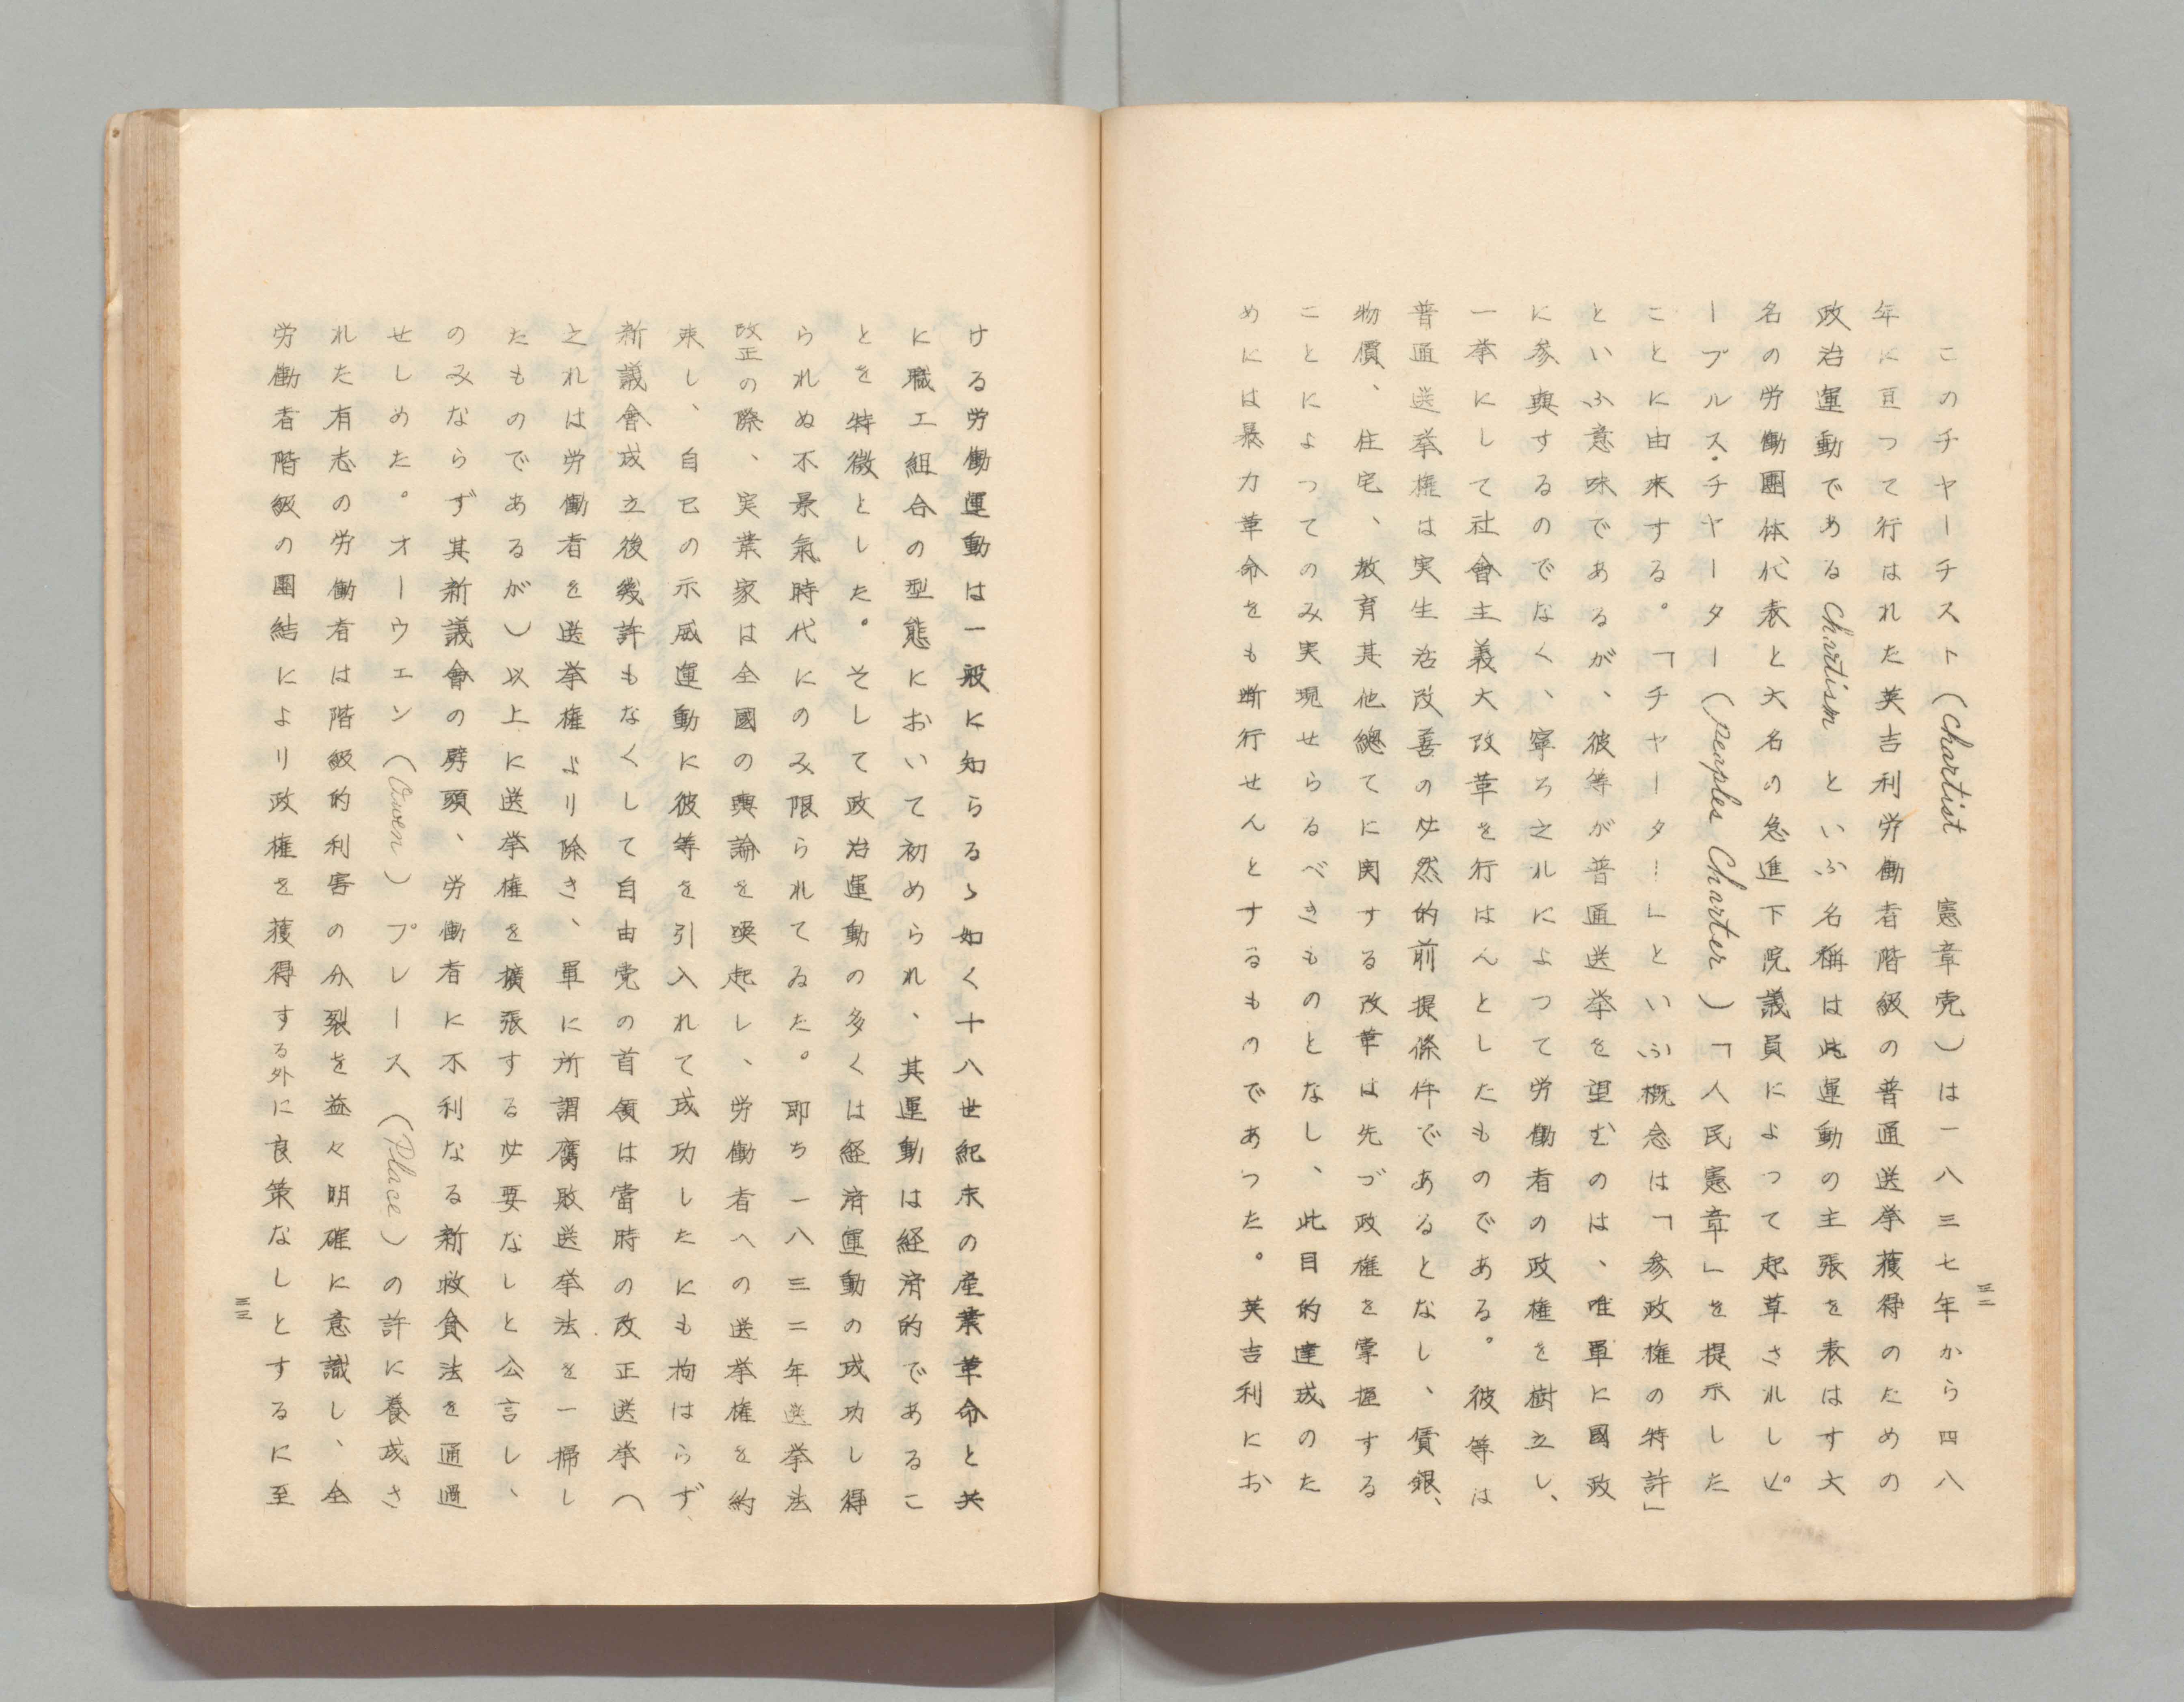 このチヤーチスト(Chartist 憲章党)は一八三七年から四八
年に亘つて行はれた英吉利労働者階級の普通送挙獲得のための
政治運動であるChartismといふ名稱は此運動の主張を表はす六
名の労働團体代表と六名の急進下院議員によつて起草されしピ
ープルス・チヤーター(peaples Charter)「人民憲章」を提示した
ことに由来する。「チヤーター」といふ概念は「参政権の特許」
といふ意味であるが、彼等が普通送挙を望むのは、唯単に國政
に参與するのでなく、寧ろ之れによつて労働者の政権を樹立し、
一挙にして社會主義大改革を行はんとしたものである。彼等は
普通送挙権は実生活改善の必然的前提條件であるとなし、賃銀、
物價、住宅、教育其他總てに関する改革は先づ政権を掌握する
ことによつてのみ実現せらるべきものとなし、此目的達成のた
めには暴力革命をも断行せんとするものであつた。英吉利にお
三二
ける労働運動は一般に知らるゝ如く十八世紀末の産業革命と共
に職工組合の型態において初められ、其運動は経済的であるこ
とを特徴とした。そして政治運動の多くは経済運動の成功し得
られぬ不景氣時代にのみ限られてゐた。即ち一八三二年選挙法
改正の際、実業家は全國の輿論を喚起し、労働者への送挙権を約
束し、自己の示威運動に彼等を引入れて成功したにも拘はらず、
新議會成立後幾許もなくして自由党の首領は當時の改正送挙へ
之れは労働者を送挙権より除き、単に所謂腐敗送挙法を一掃し
たものであるが)以上に送挙権を擴張する必要なしと公言し、
のみならず其新議會の劈頭、労働者に不利なる新救貧法を通過
せしめた。オーウェン(Owen)プレース(Place)の許に養成さ
れた有志の労働者は階級的利害の分裂を益々明確に意識し、全
労働者階級の團結により政権を獲得する外に良策なしとするに至
三三